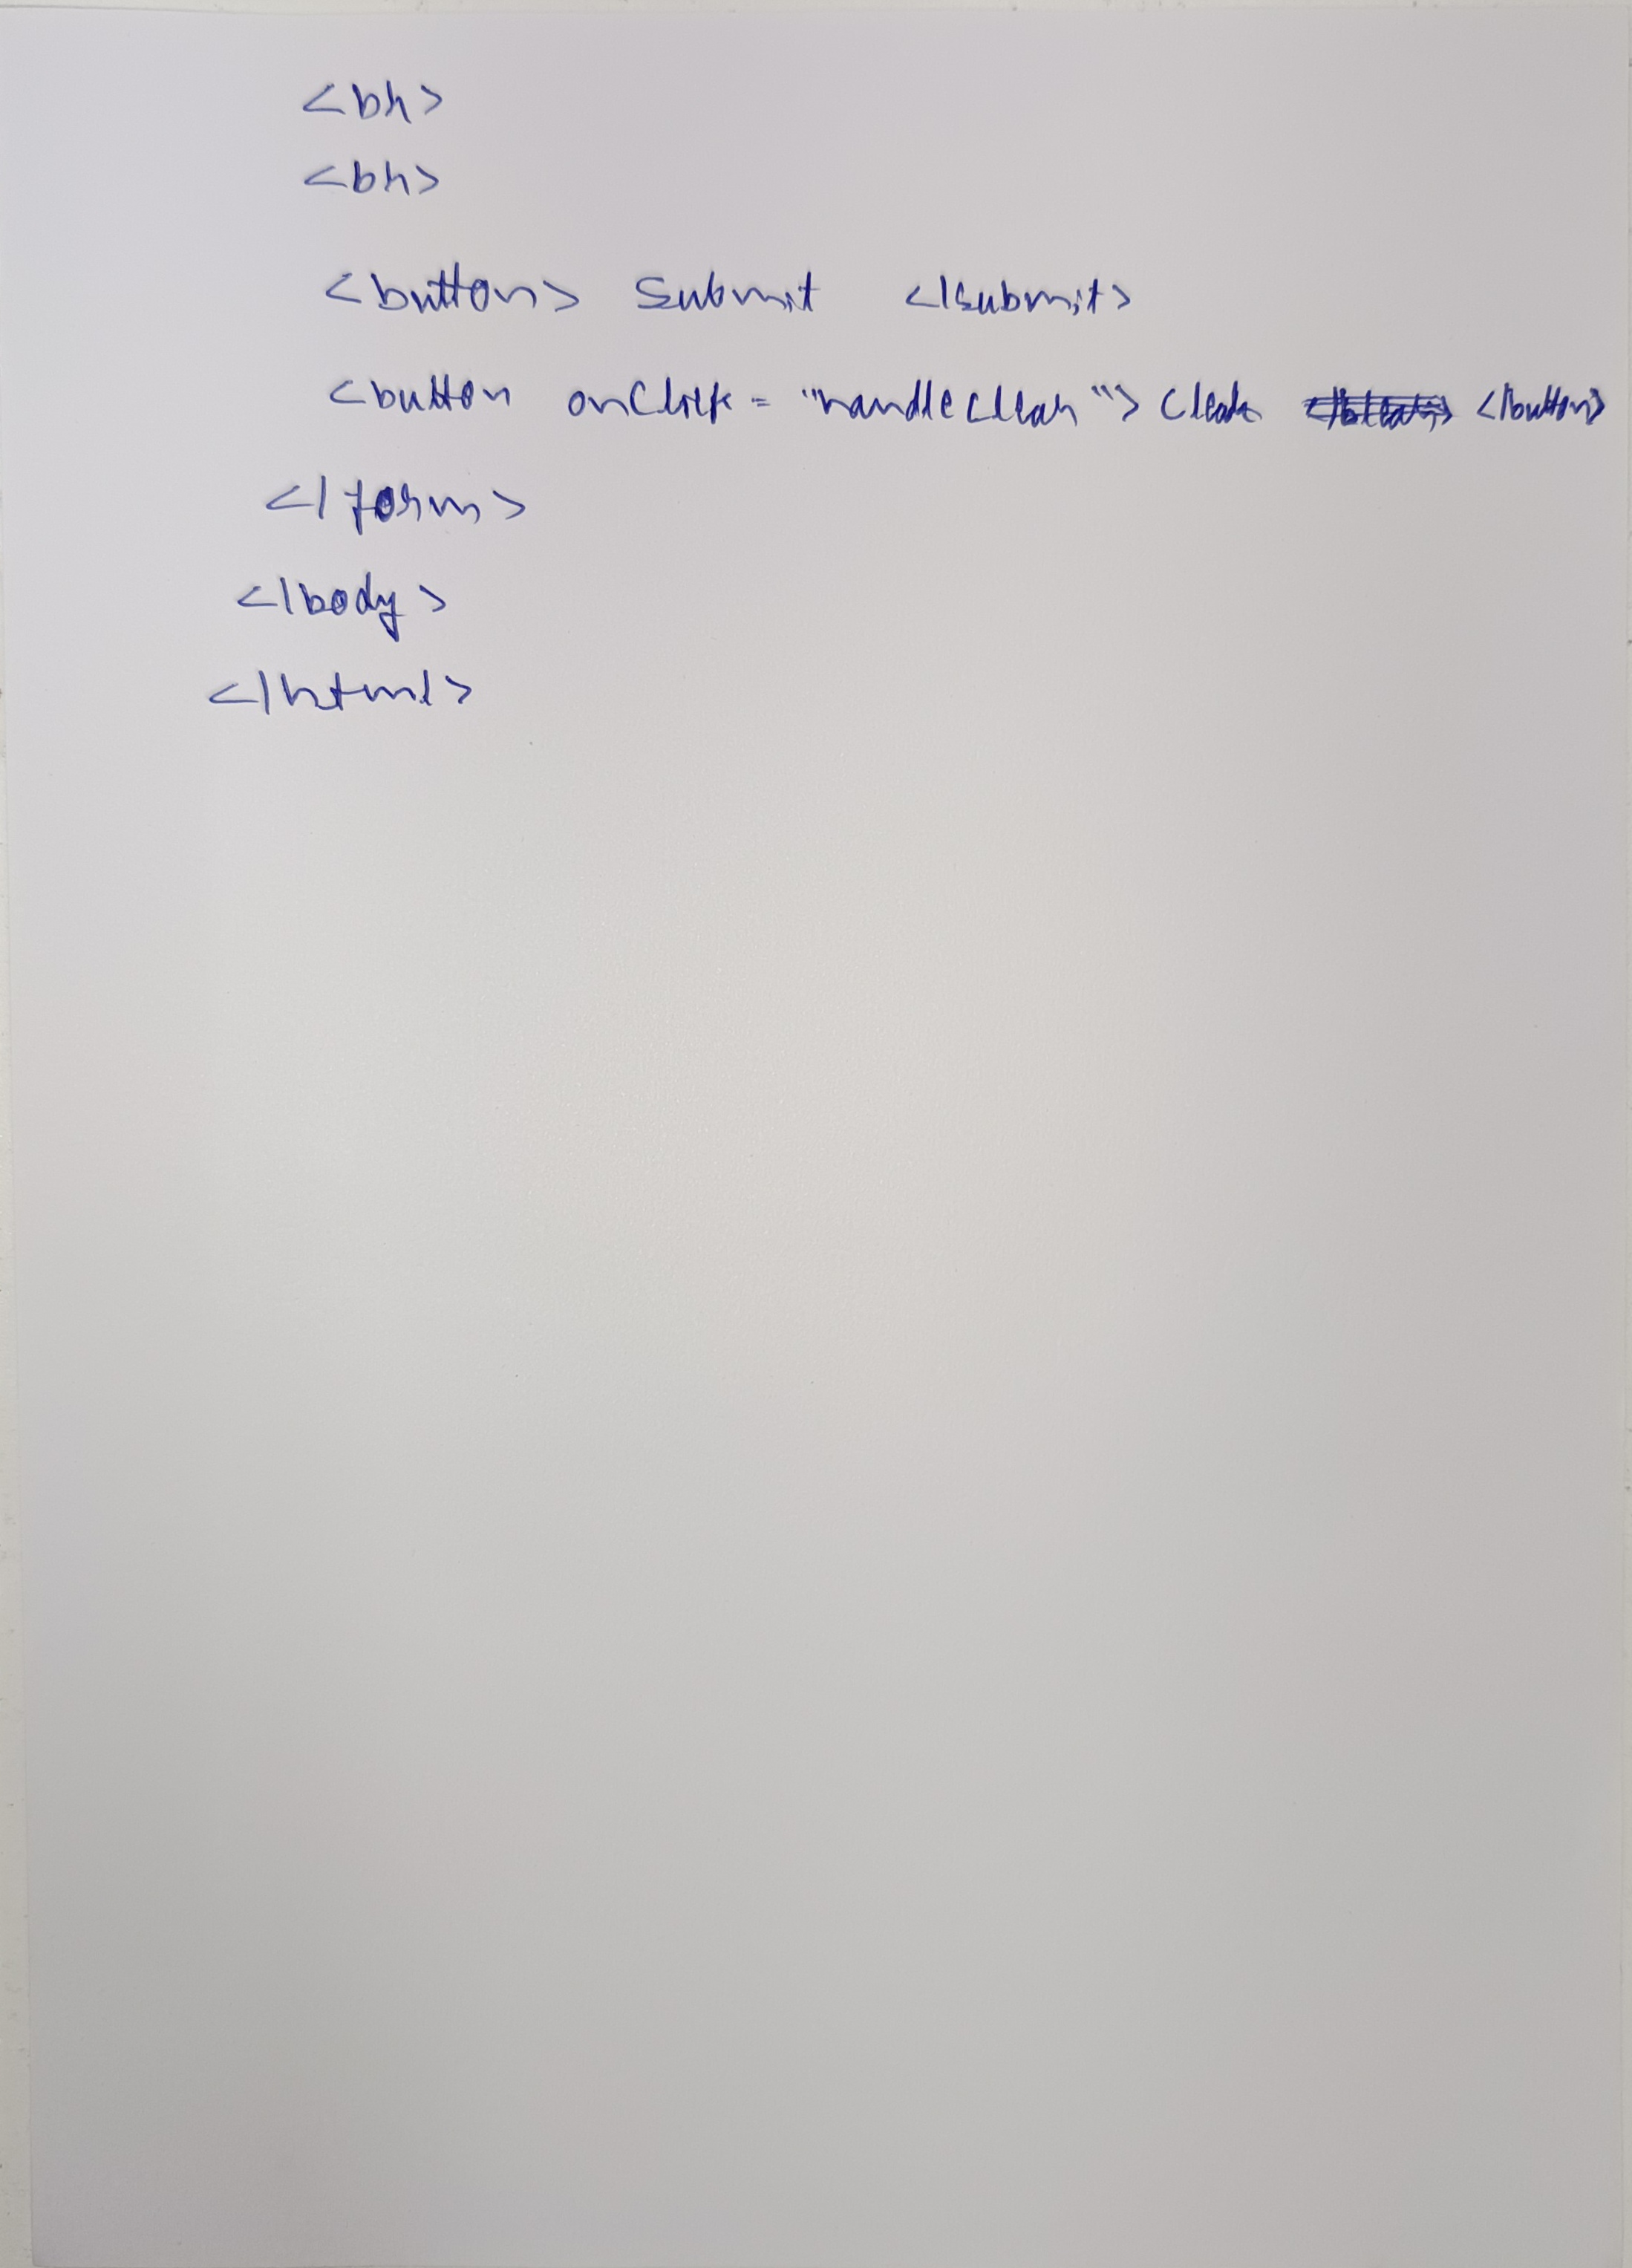 <br>
<br>
<button> Submit </submit>
<button onClick = "handleclear"> Clear </button>
</form>
</body>
</html>